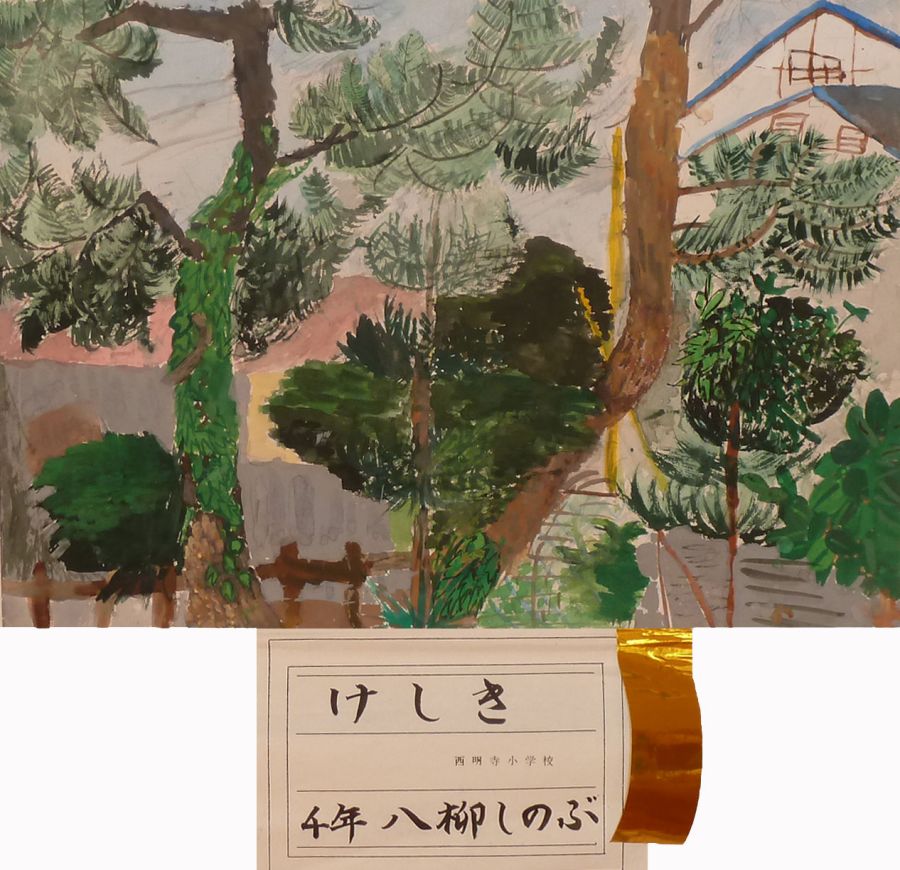 けしき
西明寺小学校
4年 八柳しのぶ